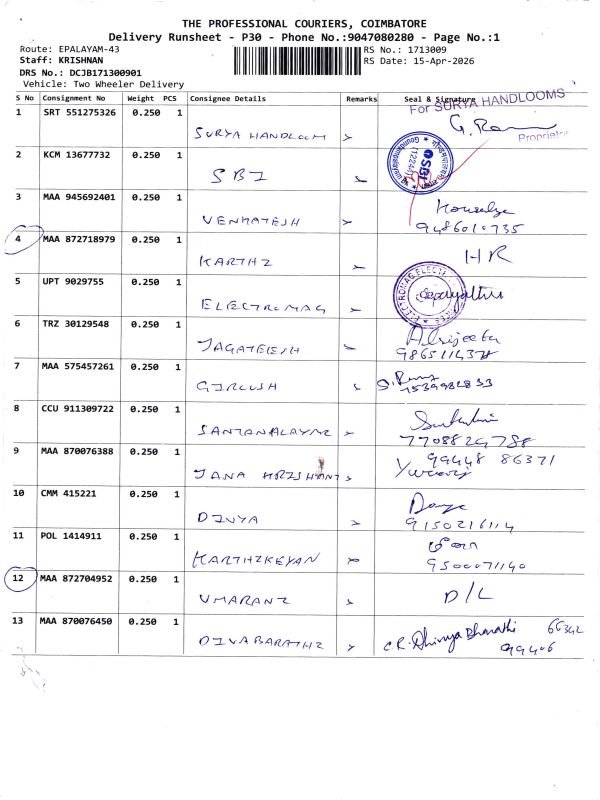 THE PROFESSIONAL COURIERS, COIMBATORE
Delivery Runsheet - P30 - Phone No.:9047080280 - Page No.:1
Route: EPALAYAM-43
RS No.: 1713009
Staff: KRISHNAN
RS Date: 15-Apr-2026
DRS No.: DCJB171300901
Vehicle: Two Wheeler Delivery
S No Consignment No Weight PCS Consignee Details Remarks Seal & Signature
For SURYA HANDLOOMS
1 SRT 551275326 0.250 1 SURYA HANDLOOM
Proprietor
2 KCM 13677732 0.250 1 SBI
SBI
3 MAA 945692401 0.250 1 VENKATESH
9486010735
4 MAA 872718979 0.250 1 KARTHI HR
5 UPT 9029755 0.250 1 ELECTROMAG
6 TRZ 30129548 0.250 1 JAGATEESH
7 MAA 575457261 0.250 1 GIRIUSH
8 CCU 911309722 0.250 1 SANTANALAYMI
7708829788
9 MAA 870076388 0.250 1 JANA
99448 86371
10 CMM 415221 0.250 1 DIVYA
9150216114
11 POL 1414911 0.250 1 KARTHIKEYAN
9500071140
12 MAA 872704952 0.250 1 UMARANI D/L
13 MAA 870076450 0.250 1 DIVABARATHI C.R. Dhivya Bharathi 66342
99406